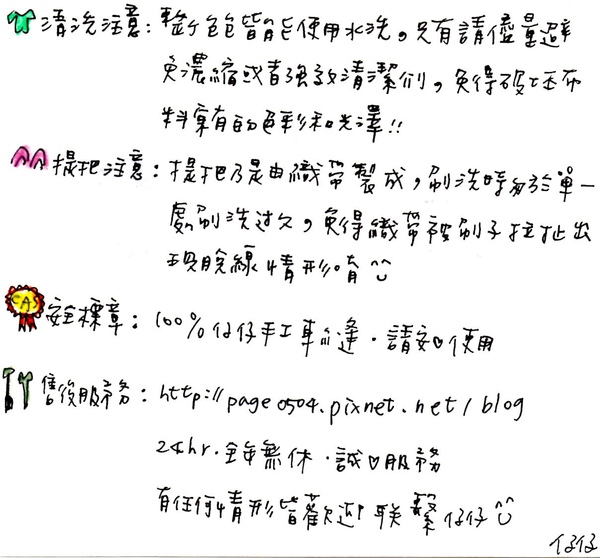 清洗注意：整个包皆能使用水洗，只有請儘量避
免濃縮或者強效清潔劑，免得破坏布
料窉有的色彩和光澤!!
提把注意：提把乃是由織帶製成，刷洗時勿於單一
處刷洗过久，免得織帶被刷子拉扯出
現脫線情形唷
CAS 安全標章：100%仔仔手工車縫．請安♡使用
售後服務：http://page0504.pixnet.net/blog
24hr．全年無休．誠♡服務
有任何情形皆歡迎聯繫仔仔
仔仔